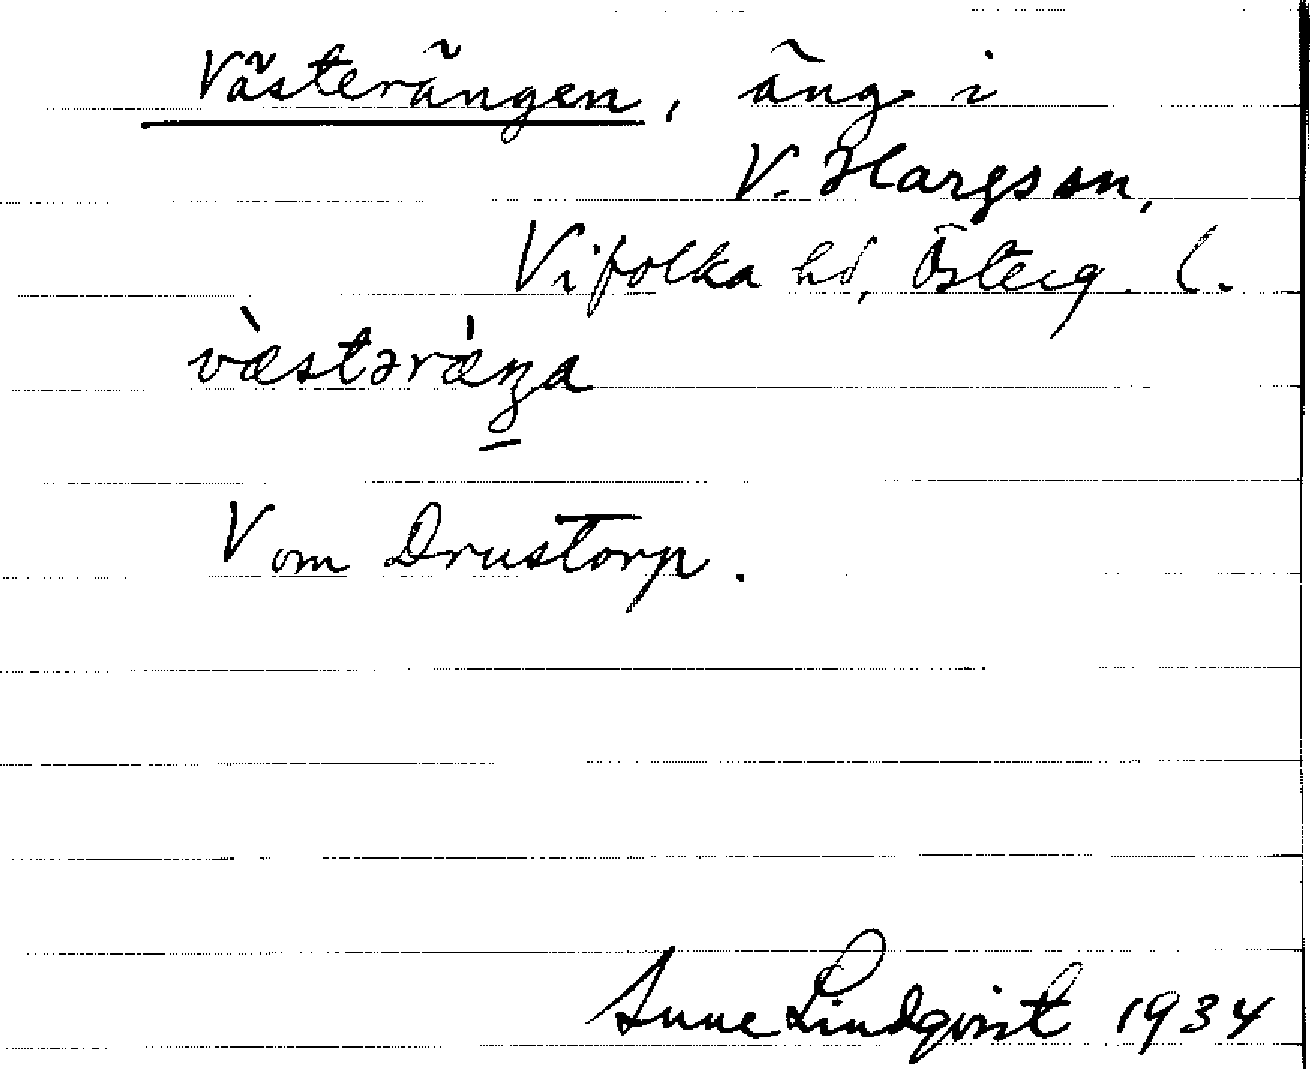 Västerängen, äng i
V. Hargs sn,
Vifolka hd, Österg. l.
væ̀stəræ̀ŋa
V om Drustorp.
Sune Lindqvist 1934